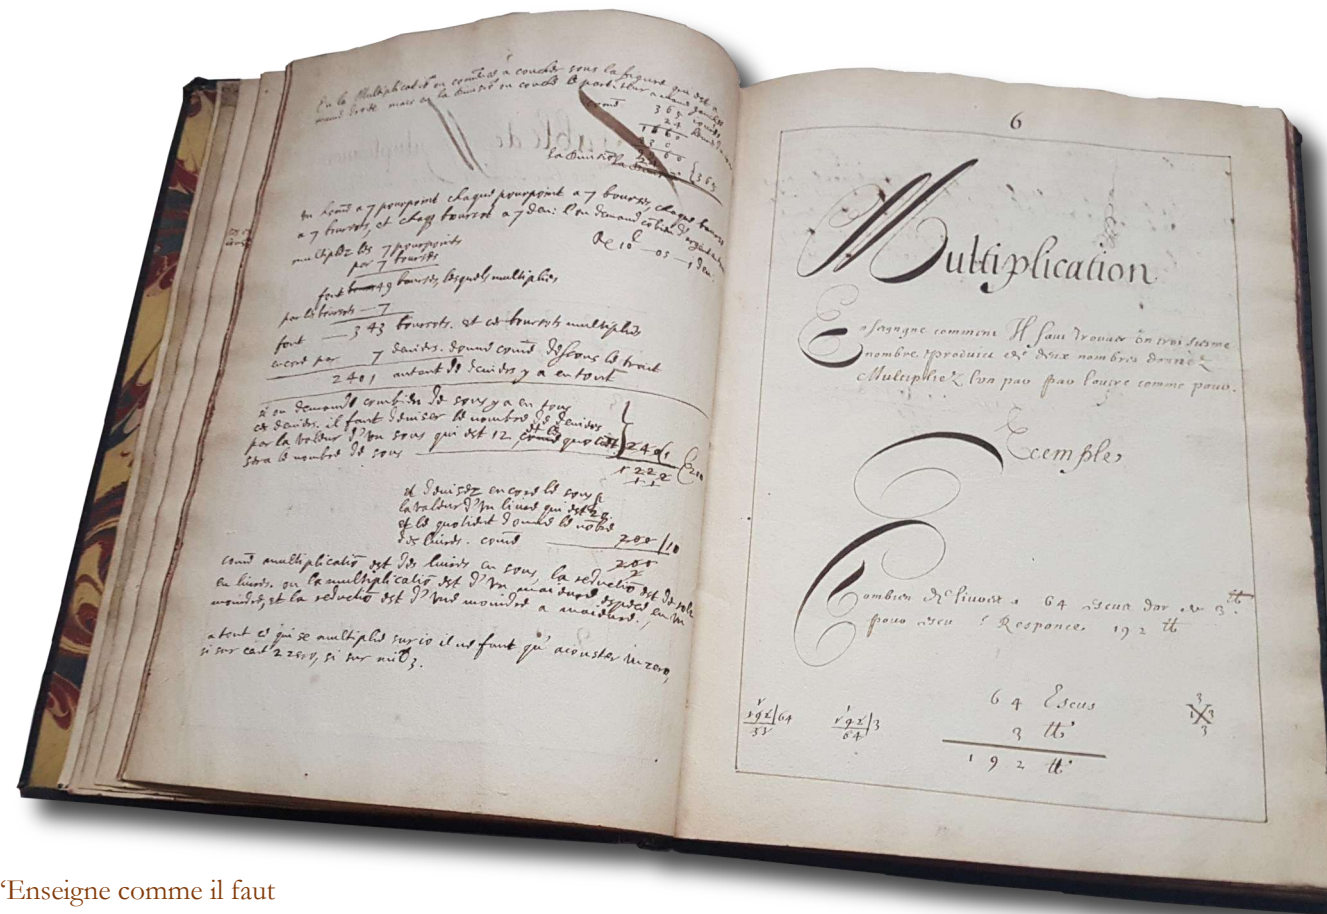 En la multiplicatiõ on comẽce a coucher sous la figure qui est a
main droite mais en la division on couche le partiteur a main gauche
comẽ 365
24
1460
730
la division
{365
un homẽ a 7 pourpoint chaque pourpoint a 7 bourses, chaque bourse
a 7 boursots, et chaq boursot a 7 den: l'on demand cõbien d'argent
multiplez les 7 pourpoints
Re 10 l — 0s — 1 den.
par 7 bourses
font 49 bourses, lesquels multiplies
par les boursots — 7
font — 343 boursots. et ces boursots multiplies
encore par 7 deniers. donne comẽ dessous le trait
2401 autant de deniers y a en tout
si on demande combien de sous y a en tous
ces deniers. il faut deviser le nombre de deniers
par la valeur d'un sous qui est 12, et le quotient
sera le nombre de sous
2401
1222
11
et devisez encore le sous p
la valeur d'un livre qui est 20
et le quotient donne le nõbre
des livres. comẽ 200/10
200
2
comẽ multiplicatiõ est des livres en sous, la reductiõ est de sols
en livres. ou la multiplicatiõ est d'un maieure espece en un
moindre, et la reductiõ est d'une moindre a maieure.
atent ce qui se multiplie sur 10 il ne faut qu' aiouster un zero,
si sur cent 2 zero, si sur mil 3.
6
Multiplication
Enseigne comment Il faut trouver un troisiesme
nombre produict de deux nombres donnéz
Multipliéz l'un par l'autre comme pour
Exemple,
Combien de livres 64 escus dor 3 ₶
pour escu Responce, 192 ₶
64 Escus
3 ₶
192 ₶
1
192|64
33
1
192|3
64
3
1 X 3
3
‘Enseigne comme il faut